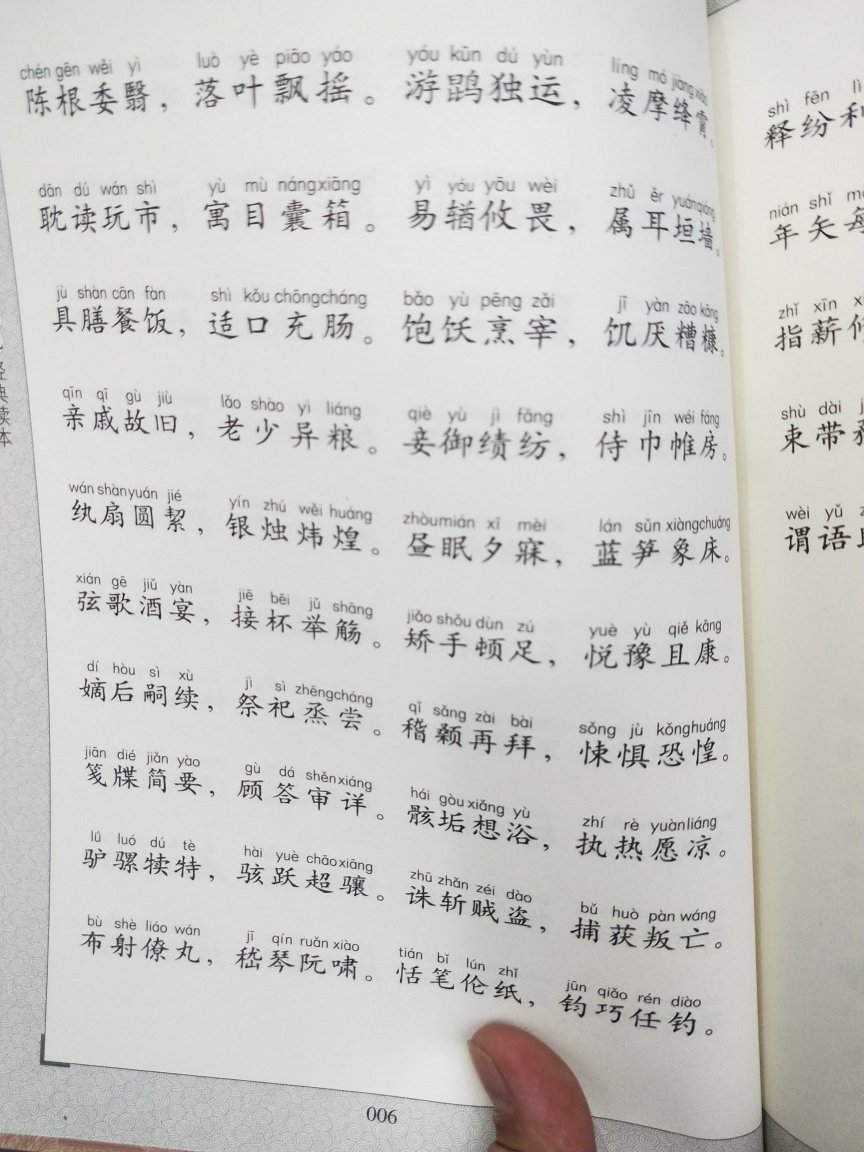 chén gēn wěi yì luò yè piāo yáo yóu kūn dú yùn líng mó jiàng xiāo
陈根委翳，落叶飘摇。游鹍独运，凌摩绛霄。
dān dú wán shì yù mù náng xiāng yì yóu yōu wèi zhǔ ěr yuán qiáng
耽读玩市，寓目囊箱。易𬨎攸畏，属耳垣墙。
jù shàn cān fàn shì kǒu chōng cháng bǎo yù pēng zǎi jī yàn zāo kāng
具膳餐饭，适口充肠。饱饫烹宰，饥厌糟糠。
qīn qī gù jiù lǎo shào yì liáng qiè yù jì fǎng shì jīn wéi fáng
亲戚故旧，老少异粮。妾御绩纺，侍巾帷房。
wán shàn yuán jié yín zhú wěi huáng zhòu mián xī mèi lán sǔn xiàng chuáng
纨扇圆絜，银烛炜煌。昼眠夕寐，蓝笋象床。
xián gē jiǔ yàn jiē bēi jǔ shāng jiǎo shǒu dùn zú yuè yù qiě kāng
弦歌酒宴，接杯举觞。矫手顿足，悦豫且康。
dí hòu sì xù jì sì zhēng cháng qǐ sǎng zài bài sǒng jù kǒng huáng
嫡后嗣续，祭祀烝尝。稽颡再拜，悚惧恐惶。
jiān dié jiǎn yào gù dá shěn xiáng hái gòu xiǎng yù zhí rè yuàn liáng
笺牒简要，顾答审详。骸垢想浴，执热愿凉。
lǘ luó dú tè hài yuè chāo xiāng zhū zhǎn zéi dào bǔ huò pàn wáng
驴骡犊特，骇跃超骧。诛斩贼盗，捕获叛亡。
bù shè liáo wán jī qín ruǎn xiào tián bǐ lún zhǐ jūn qiǎo rén diào
布射僚丸，嵇琴阮啸。恬笔伦纸，钧巧任钓。
006
经典读本
shì fēn lì
释纷利
nián shǐ
年矢每
zhǐ xīn
指薪修
shù dài
束带矜
wèi yǔ
谓语助